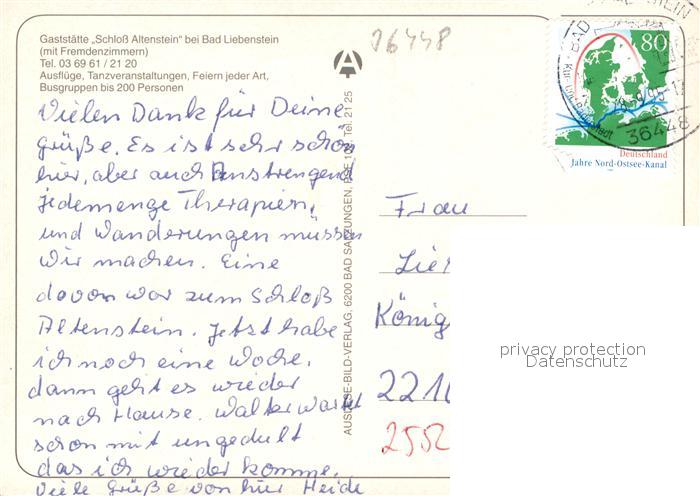 Gaststätte „Schloß Altenstein" bei Bad Liebenstein
(mit Fremdenzimmern)
Tel. 03 69 61 / 21 20
Ausflüge, Tanzveranstaltungen, Feiern jeder Art,
Busgruppen bis 200 Personen
36448
80
36448
Deutschland
Jahre Nord-Ostsee-Kanal
Vielen Dank für Deine
Grüße. Es ist sehr schön
hier, aber auch Anstrengend
jedemenge Therapien,
und Wanderungen müssen
wir machen. Eine
davon war zum Schloß
Altenstein. Jetzt habe
ich noch eine Woche,
dann geht es wieder
nach Hause. Walter wartet
schon mit ungedult
das ich wieder komme.
Viele Grüße von hier Heide
AUSLESE-BILD-VERLAG, 6200 BAD SALZUNGEN, Tel. 21 25
Frau
König
2552
privacy protection
Datenschutz